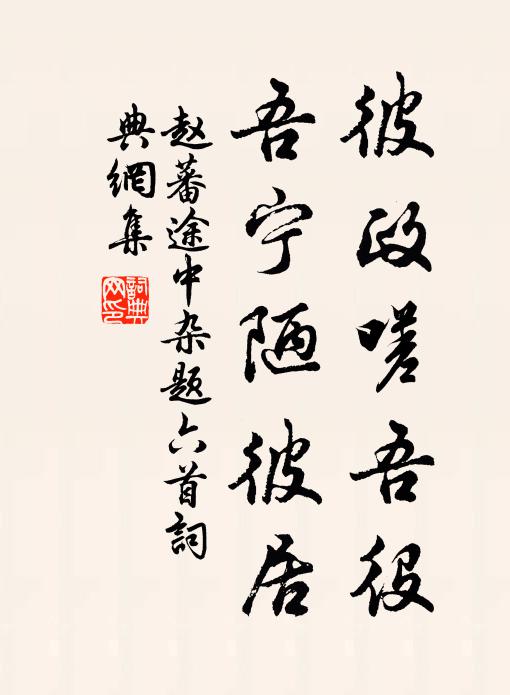 彼政嗟吾役
吾宁陋彼居
赵蕃途中杂题六首詞
典網集
詞典
网印